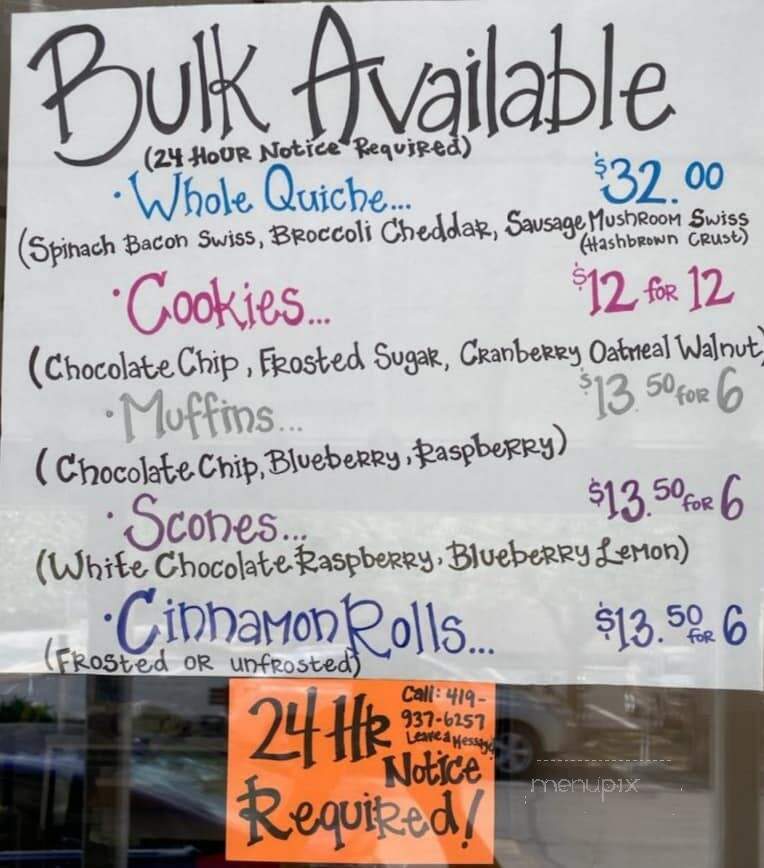 Bulk Available
(24 Hour Notice Required)
• Whole Quiche... $32.00
(Spinach Bacon Swiss, Broccoli Cheddar, Sausage Mushroom Swiss
(Hashbrown Crust)
• Cookies... $12 for 12
(Chocolate Chip, Frosted Sugar, Cranberry Oatmeal Walnut)
• Muffins... $13.50 for 6
(Chocolate Chip, Blueberry, Raspberry)
• Scones... $13.50 for 6
(White Chocolate Raspberry, Blueberry Lemon)
• Cinnamon Rolls... $13.50 for 6
(Frosted or unfrosted)
24 Hr
Call: 419-
937-6257
Leave a Message!
Notice
Required!
menupix